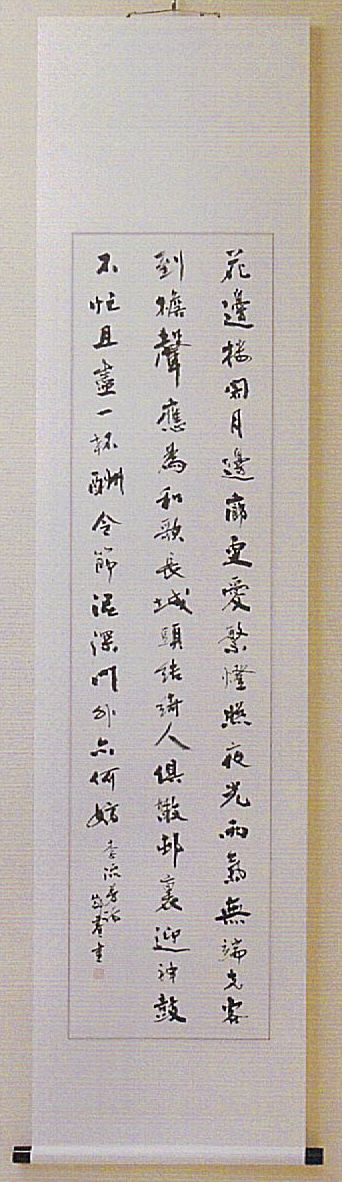 花邊樓閣月邊廊更愛繁燈照夜光雨氣無端先客
到檐聲應為和歌長城頭結綺人俱散邨裏迎神鼓
不忙且盡一杯酬令節泥深門外亦何妨
李流芳詩
書